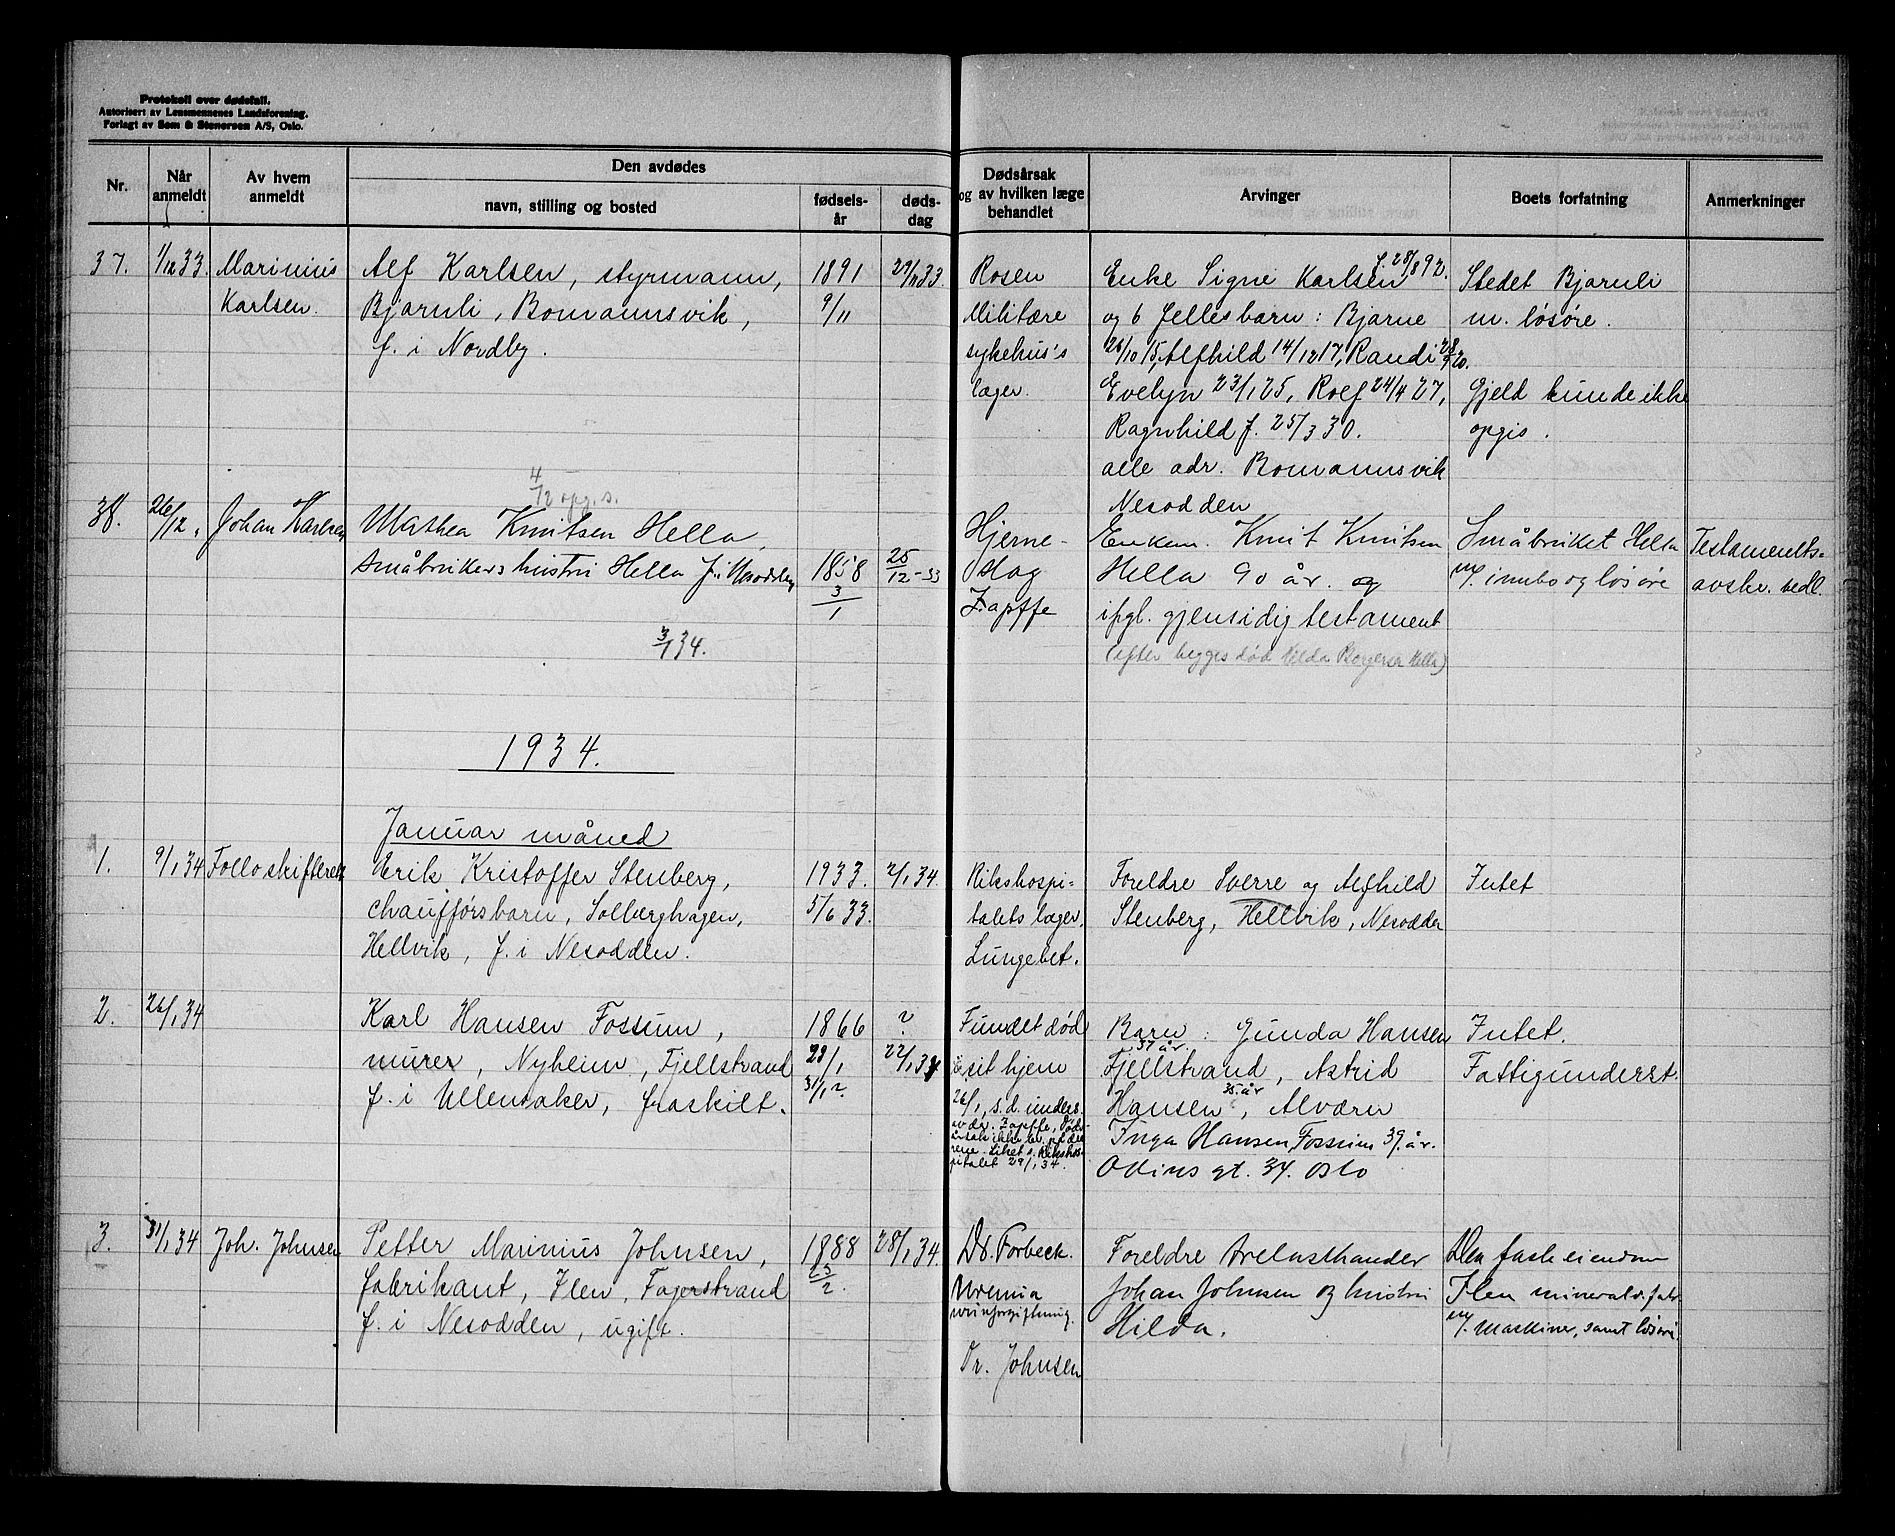 Protokoll over dødsfall.
Autorisert av Lensmennenes Landsforening.
Forlagt av Sem & Stenersen A/S, Oslo.
Nr.
Når anmeldt
Av hvem anmeldt
Den avdødes
navn, stilling og bosted
fødsels-år
døds-dag
Dødsårsak og av hvilken læge behandlet
Arvinger
Boets forfatning
Anmerkninger
37.
1/12 33.
Marinius
Karlsen.
Alf Karlsen, styrmann,
Bjarnli, Bomannsvik,
f. i Nordby.
1891
9/11
29/11 33
Rosen
Militære
sykehus's
læger.
Enke Signe Karlsen f. 28/8 92.
og 6 fellesbarn: Bjarne
26/10 15, Alfhild 14/12 17, Randi 28/9 20.
Evelyn 23/1 25, Rolf 24/4 27,
Ragnhild f. 25/3 30.
alle adr. Bomannsvik
Nesodden
Stedet Bjarnli
m. løsøre.
Gjeld kunde ikke
opgis.
4/12 opg. s.
38.
26/12.
Johan Karlsen
Mathea Knutsen Hella,
småbrukers hustru Hella f. i Nesodden
3/1 34.
1858
3/1
25/12-33
Hjerne-
slag
Zapffe
Enkem. Knut Knutsen
Hella 90 år. og
ifgl. gjensidig testament
(efter begges død Hilda Borgersen Hella)
Småbruket Hella
m/. innbo og løsøre
Testamentts-
avskr. vedl.
1934.
Januar måned
1.
9/1 34
Follo skifterett
Erik Kristoffer Stenberg,
chaufførsbarn, Solberghagen,
Hellvik, f. i Nesodden.
1933.
5/6 33.
2/1 34.
Rikshospi-
talets læger.
Lungebet.
Foreldre Sverre og Alfhild
Stenberg, Hellvik, Nesodden
Intet
2.
26/1 34
Karl Hansen Fossum,
murer, Nyheim, Fjellstrand
f. i Ullensaker, fraskilt.
1866
28/1
31/1 ?
?
22/1 34
Fundet død
i sit hjem
26/1, s.d. unders.
av dr. Zapffe, Døds-
årsak ikke
Liket s. Rikshos-
pitalet 29/1 34.
Barn: Gunda Hansen
37 år.
Fjellstrand, Astrid
35 år
Hansen, Alværn
Inga Hansen Fossum 39 år.
Odins gt. 34. Oslo
Intet.
Fattigunderst.
3.
31/1 34
Joh. Johnsen
Petter Marinius Johnsen,
fabrikant, Ilen, Fagerstrand
f. i Nesodden, ugift.
1888
23/2.
28/1 34.
Dr. Forbeck.
Uremia
urinforgiftning.
Dr. Johnsen
Foreldre trelasthandler
Johan Johnsen og hustru
Hilda.
Den faste eiendom
Ilen mineralv. fabr.
m/. maskiner, samt løsøre.